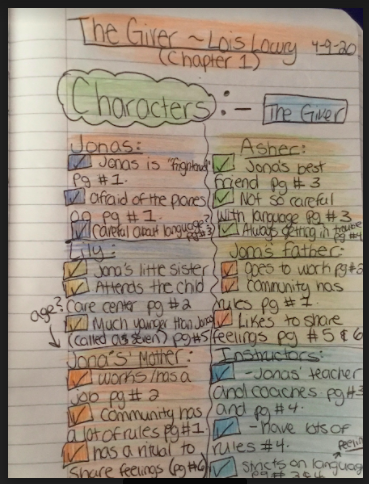 The Giver ~ Lois Lowry 4-9-20
(Chapter 1)
Characters :- The Giver
Jonas:
Jonas is "frightened"
pg #1.
afraid of the planes
pg #1.
Careful about language? pg #3
Lily:
Jona's little sister
Attends the child
care center pg #2
age?
Much younger than Jonas
(called a seven) pg #5
Jona's Mother:
works/has a
job pg #2
community has
a lot of rules pg #1
has a ritual to
share feelings (pg #6)
Asher:
Jona's best
friend pg #3
Not so careful
with language pg #3
Always getting in trouble
pg #4
Jona's father:
Goes to work pg #2
Community has
rules pg #1.
Likes to share
feelings pg #5 & 6
Instructors:
- Jonas' teacher
and coaches pg #3
and pg #4.
- have lots of
rules #4.
stricts on language
pg #3 & 4